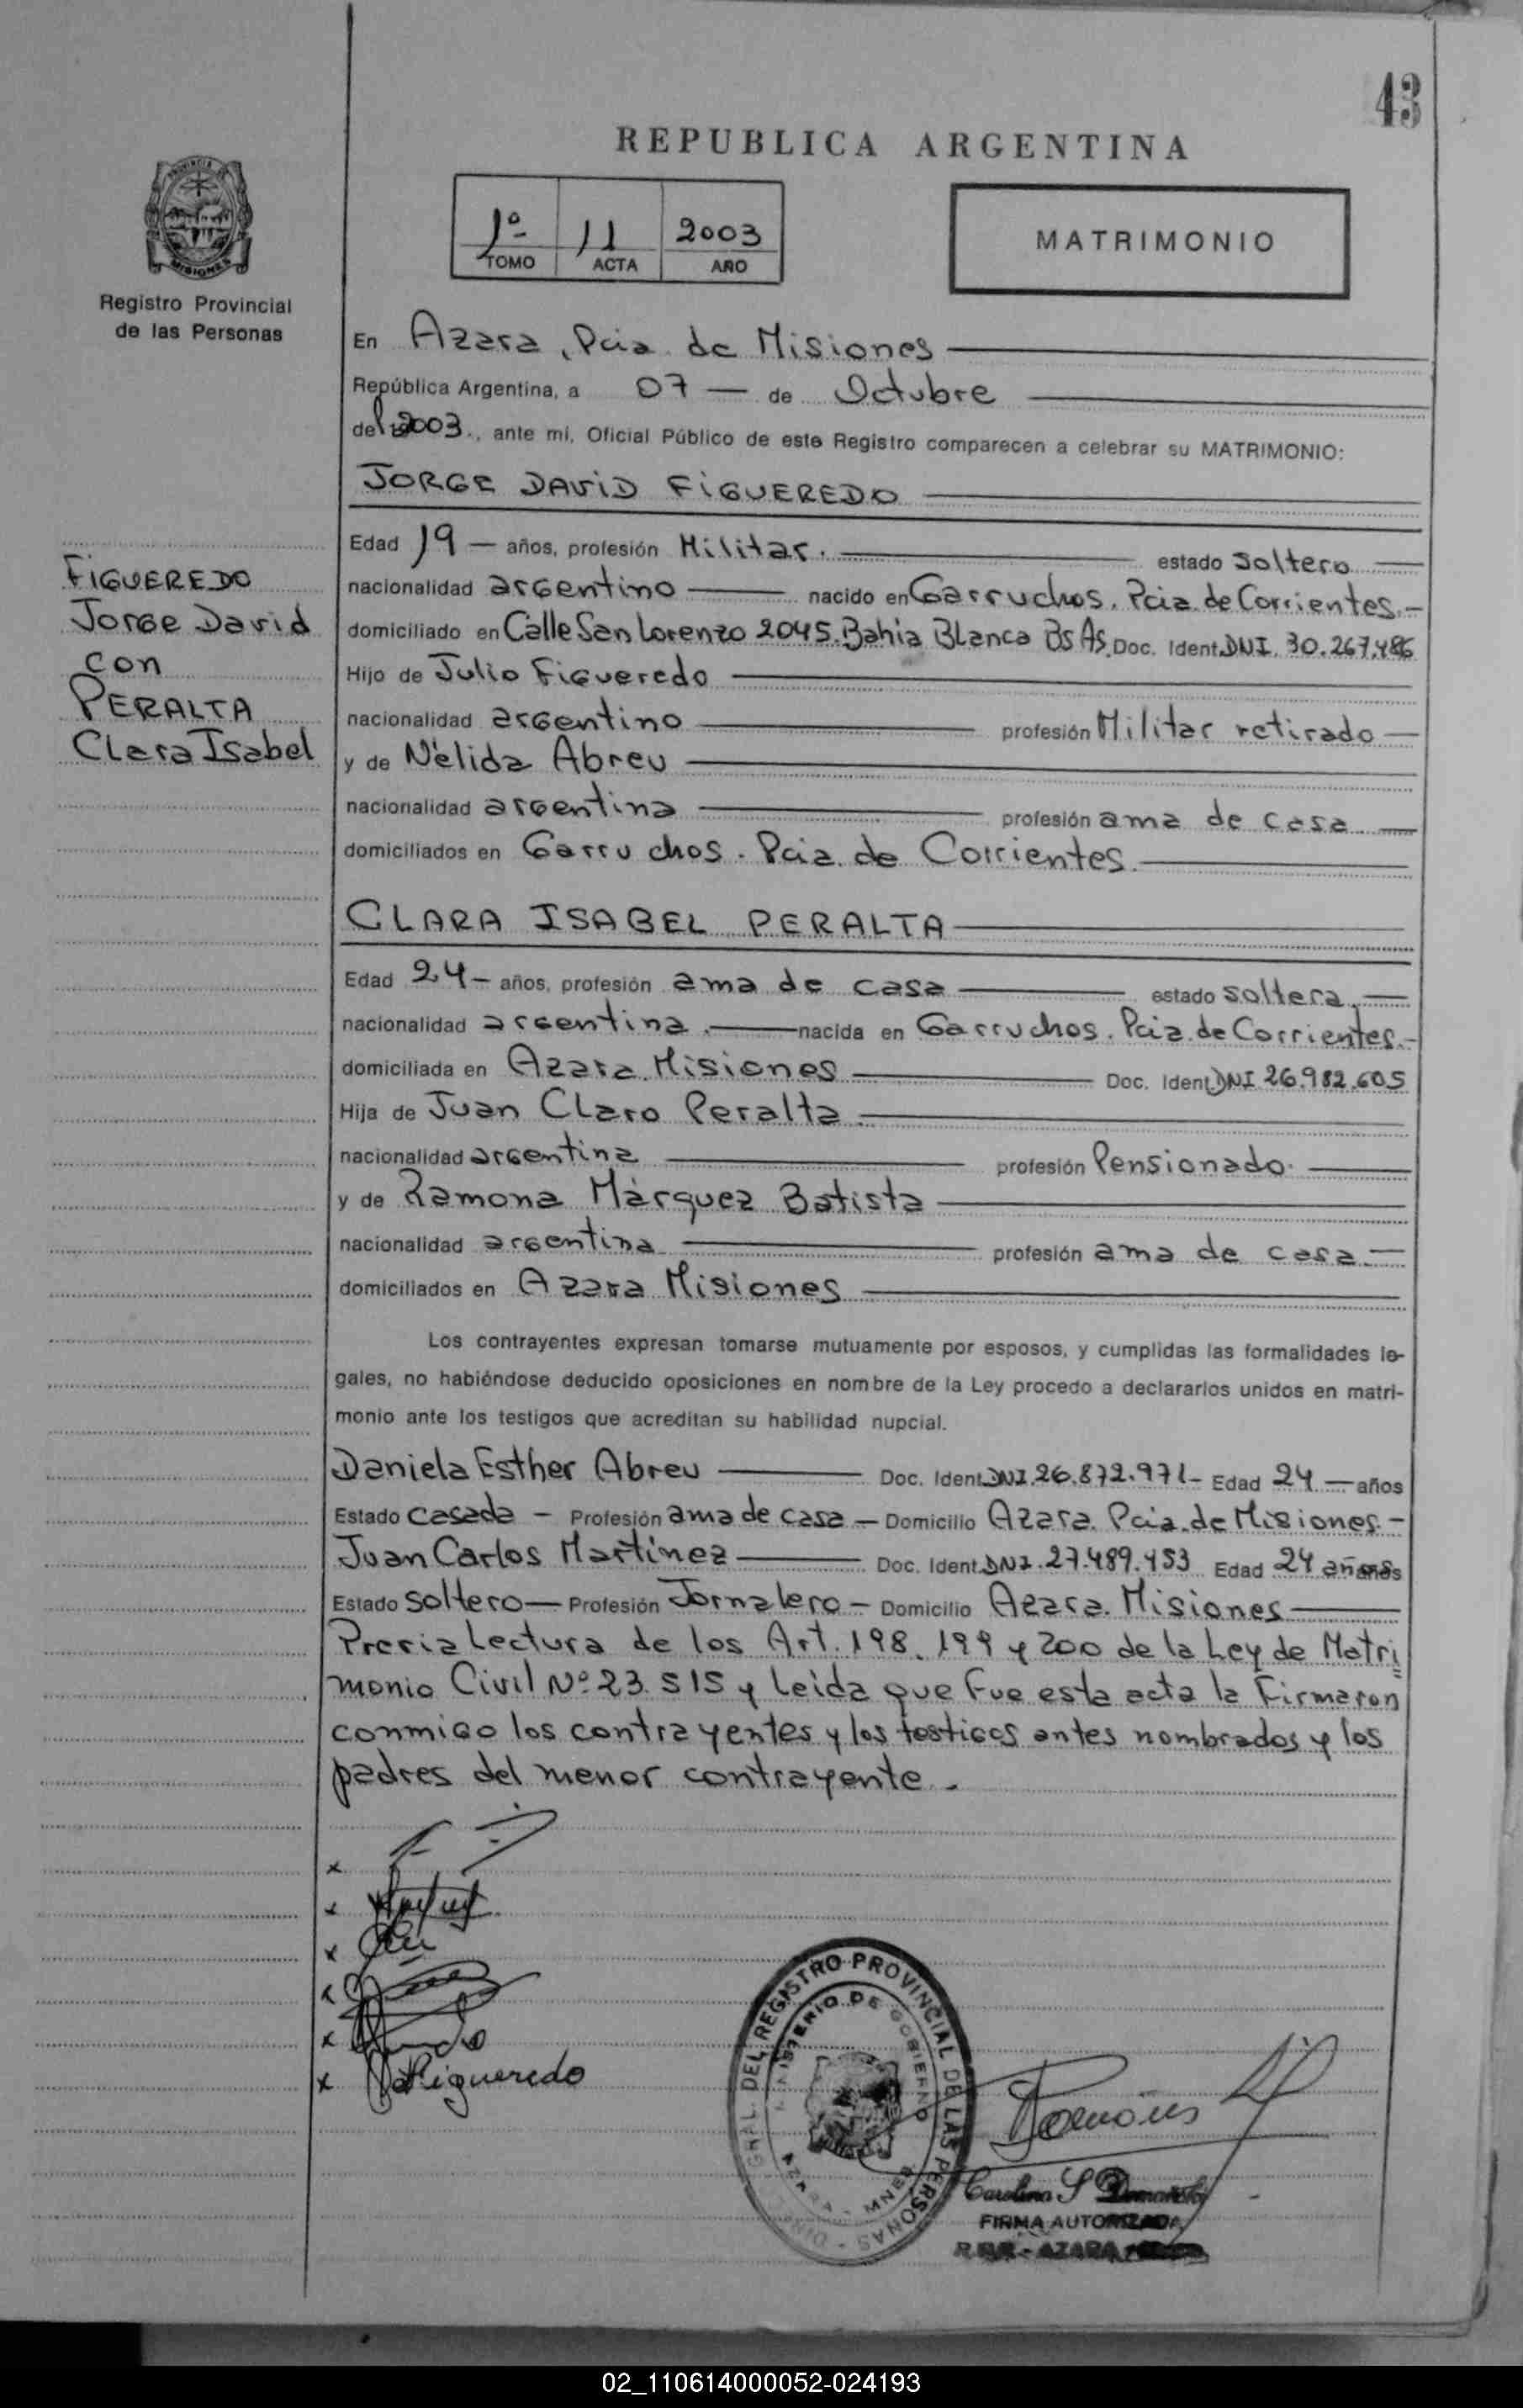 43
REPUBLICA ARGENTINA
1º 11 2003
TOMO ACTA AÑO
MATRIMONIO
PROVINCIA
MISIONES
Registro Provincial
de las Personas
En Azara, Pcia. de Misiones
República Argentina, a 07 — de Octubre
del 2003, ante mí, Oficial Público de este Registro comparecen a celebrar su MATRIMONIO:
JORGE DAVID FIGUEREDO
FIGUEREDO
Jorge David
con
PERALTA
Clara Isabel
Edad 19 — años, profesión Militar. estado Soltero
nacionalidad argentino nacido en Garruchos. Pcia. de Corrientes.-
domiciliado en Calle San Lorenzo 2045. Bahia Blanca Bs As. Doc. Ident. DNI. 30.267.486
Hijo de Julio Figueredo
nacionalidad argentino profesión Militar retirado
y de Nélida Abreu
nacionalidad argentina profesión ama de casa
domiciliados en Garruchos. Pcia. de Corrientes.
CLARA ISABEL PERALTA
Edad 24 — años, profesión ama de casa estado soltera.
nacionalidad argentina. nacida en Garruchos. Pcia. de Corrientes.-
domiciliada en Azara. Misiones Doc. Ident. DNI 26.982.605
Hija de Juan Claro Peralta
nacionalidad argentina profesión Pensionado.
y de Ramona Márquez Batista
nacionalidad argentina profesión ama de casa.
domiciliados en Azara Misiones
Los contrayentes expresan tomarse mutuamente por esposos, y cumplidas las formalidades le-
gales, no habiéndose deducido oposiciones en nombre de la Ley procedo a declararlos unidos en matri-
monio ante los testigos que acreditan su habilidad nupcial.
Daniela Esther Abreu Doc. Ident. DNI. 26.872.971- Edad 24 — años
Estado Casada — Profesión ama de casa — Domicilio Azara. Pcia. de Misiones.-
Juan Carlos Martinez Doc. Ident. DNI. 27.489.453 Edad 24 años años
Estado Soltero — Profesión Jornalero — Domicilio Azara. Misiones
Previa Lectura de los Art. 198. 199 y 200 de la Ley de Matri=
monio Civil Nº 23.515 y leída que fue esta acta la Firmaron
conmigo los contrayentes y los testigos antes nombrados y los
padres del menor contrayente.
Figueredo
GRAL. DEL REGISTRO PROVINCIAL DE LAS PERSONAS
MINISTERIO DE GOBIERNO
AZARA - MNES
FIRMA AUTORIZADA
AZARA
02_110614000052-024193